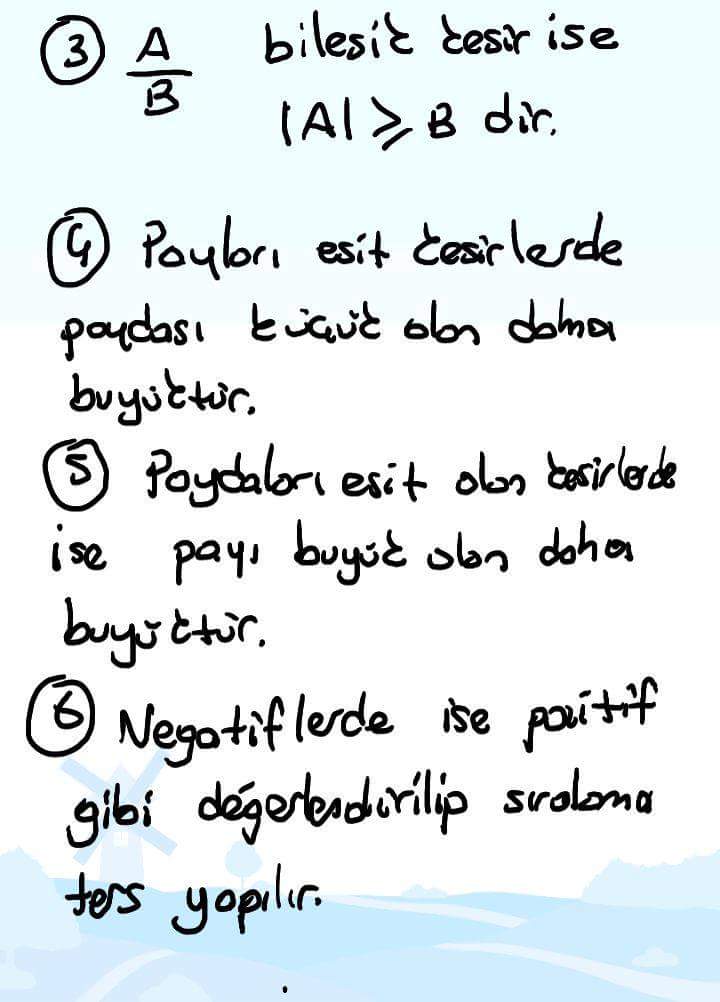 ③ A/B bileşik kesir ise
|A| ≥ B dir.
④ Payları eşit kesirlerde
paydası küçük olan daha
büyüktür.
⑤ Paydaları eşit olan kesirlerde
ise payı büyük olan daha
büyüktür.
⑥ Negatiflerde ise pozitif
gibi değerlendirilip sıralama
ters yapılır.